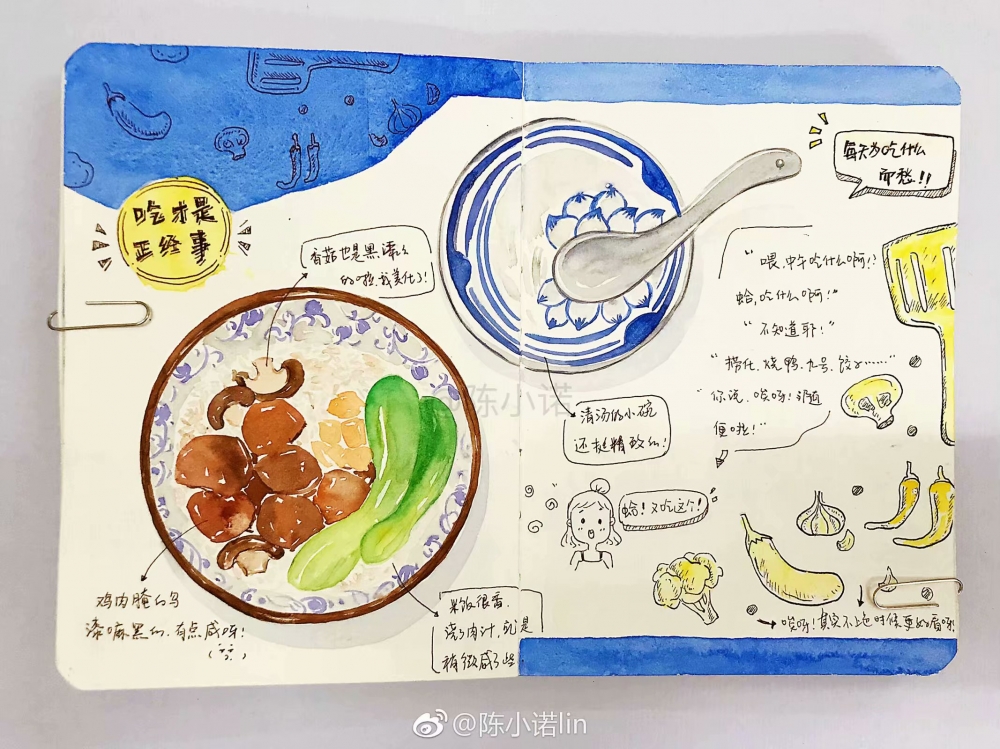 吃才是
正经事
香菇也是黑漆么
的啦.我美化了!
鸡肉腌的乌
漆嘛黑的.有点咸呀!
米饭很香.
浇了肉汁.就是
稍微咸了些
清汤的小碗
还挺精致的!
每天为吃什么
而愁!!
"喂,中午吃什么啊!?
蛤,吃什么啊!"
"不知道耶!"
"捞化.烧鸭.九号.饺子……"
"你说.唉呀!
便啦!"
蛤!又吃这个!
唉呀!其实不上色时候更好看呀!
@陈小诺
@陈小诺lin